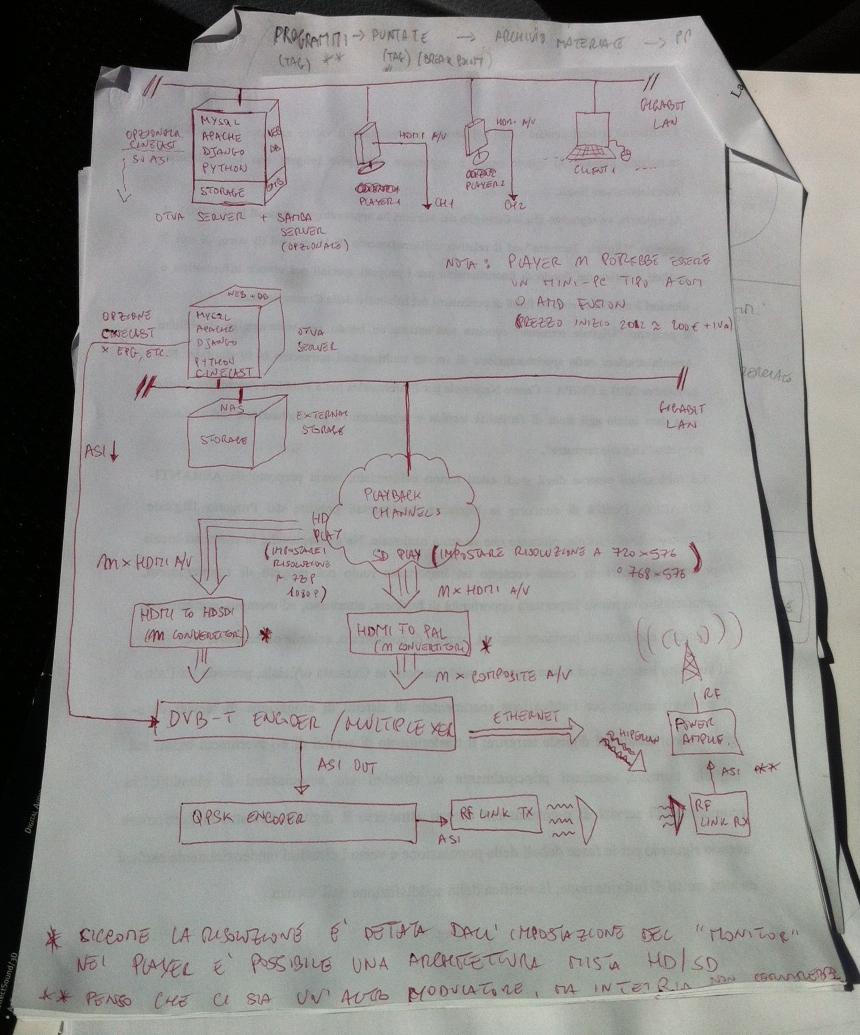 PROGRAMMI → PUNTATE → ARCHIVIO MATERIALE → PP
(TAG) ** (TAG) (BREAK POINT)
GIGABIT
LAN
OPZIONALE
CINECAST
SU ASI
MYSQL
APACHE
DJANGO
PYTHON
STORAGE
WEB
DB
HDMI A/V
HDMI A/V
PLAYER 1
CH1
PLAYER 2
CH2
CLIENT 1
OTVA SERVER + SAMBA
SERVER
(OPZIONALE)
NOTA: PLAYER M POTREBBE ESSERE
UN MINI-PC TIPO ATOM
O AMD FUSION
(PREZZO INIZIO 2012 ≈ 200€ + IVA)
OPZIONE
CINECAST
X EPG, ETC.
WEB + DB
MYSQL
APACHE
DJANGO
PYTHON
CINECAST
OTVA
SERVER
GIGABIT
LAN
NAS
STORAGE
EXTERNAL
STORAGE
ASI
PLAYBACK
CHANNELS
HD
PLAY
(IMPOSTARE
RISOLUZIONE
A 720P
1080P)
SD PLAY (IMPOSTARE RISOLUZIONE A 720×576
O 768×576)
M × HDMI A/V
M × HDMI A/V
HDMI TO HDSDI
(M CONVERTITORI) *
HDMI TO PAL
(M CONVERTITORI) *
M × COMPOSITE A/V
DVB-T ENCODER / MULTIPLEXER
ETHERNET
HIPERLAN
RF
POWER
AMPLIF.
ASI OUT
ASI **
QPSK ENCODER
ASI
RF LINK TX
RF
LINK RX
* SICCOME LA RISOLUZIONE E' DETTATA DALL'IMPOSTAZIONE DEL "MONITOR"
NEI PLAYER E' POSSIBILE UNA ARCHITETTURA MISTA HD/SD
** PENSO CHE CI SIA UN'ALTRO MODULATORE, MA IN TEORIA NON